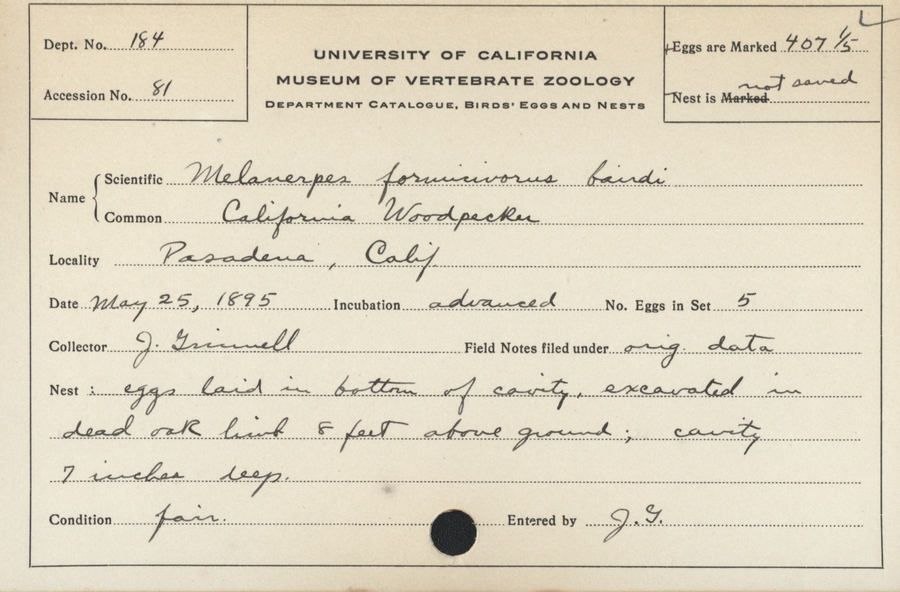 Dept. No. 184
Accession No. 81
UNIVERSITY OF CALIFORNIA
MUSEUM OF VERTEBRATE ZOOLOGY
DEPARTMENT CATALOGUE, BIRDS' EGGS AND NESTS
Eggs are Marked 407 1/5
not saved
Nest is Marked
Name
Scientific Melanerpes formicivorus bairdi
Common California Woodpecker
Locality Pasadena, Calif.
Date May 25, 1895 Incubation advanced No. Eggs in Set 5
Collector J. Grinnell Field Notes filed under orig. data
Nest : eggs laid in bottom of cavity, excavated in
dead oak limb 8 feet above ground; cavity
7 inches deep.
Condition fair. Entered by J.G.